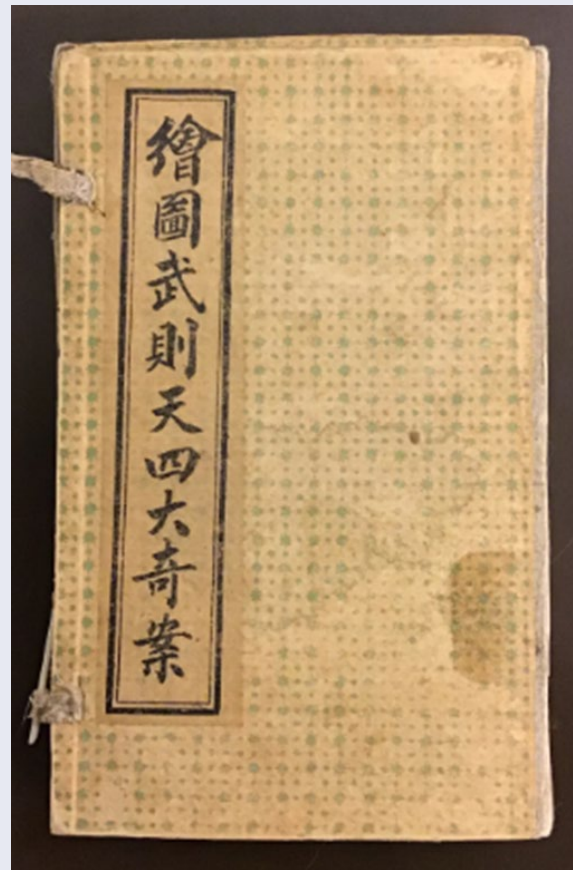 繪圖武則天四大奇案